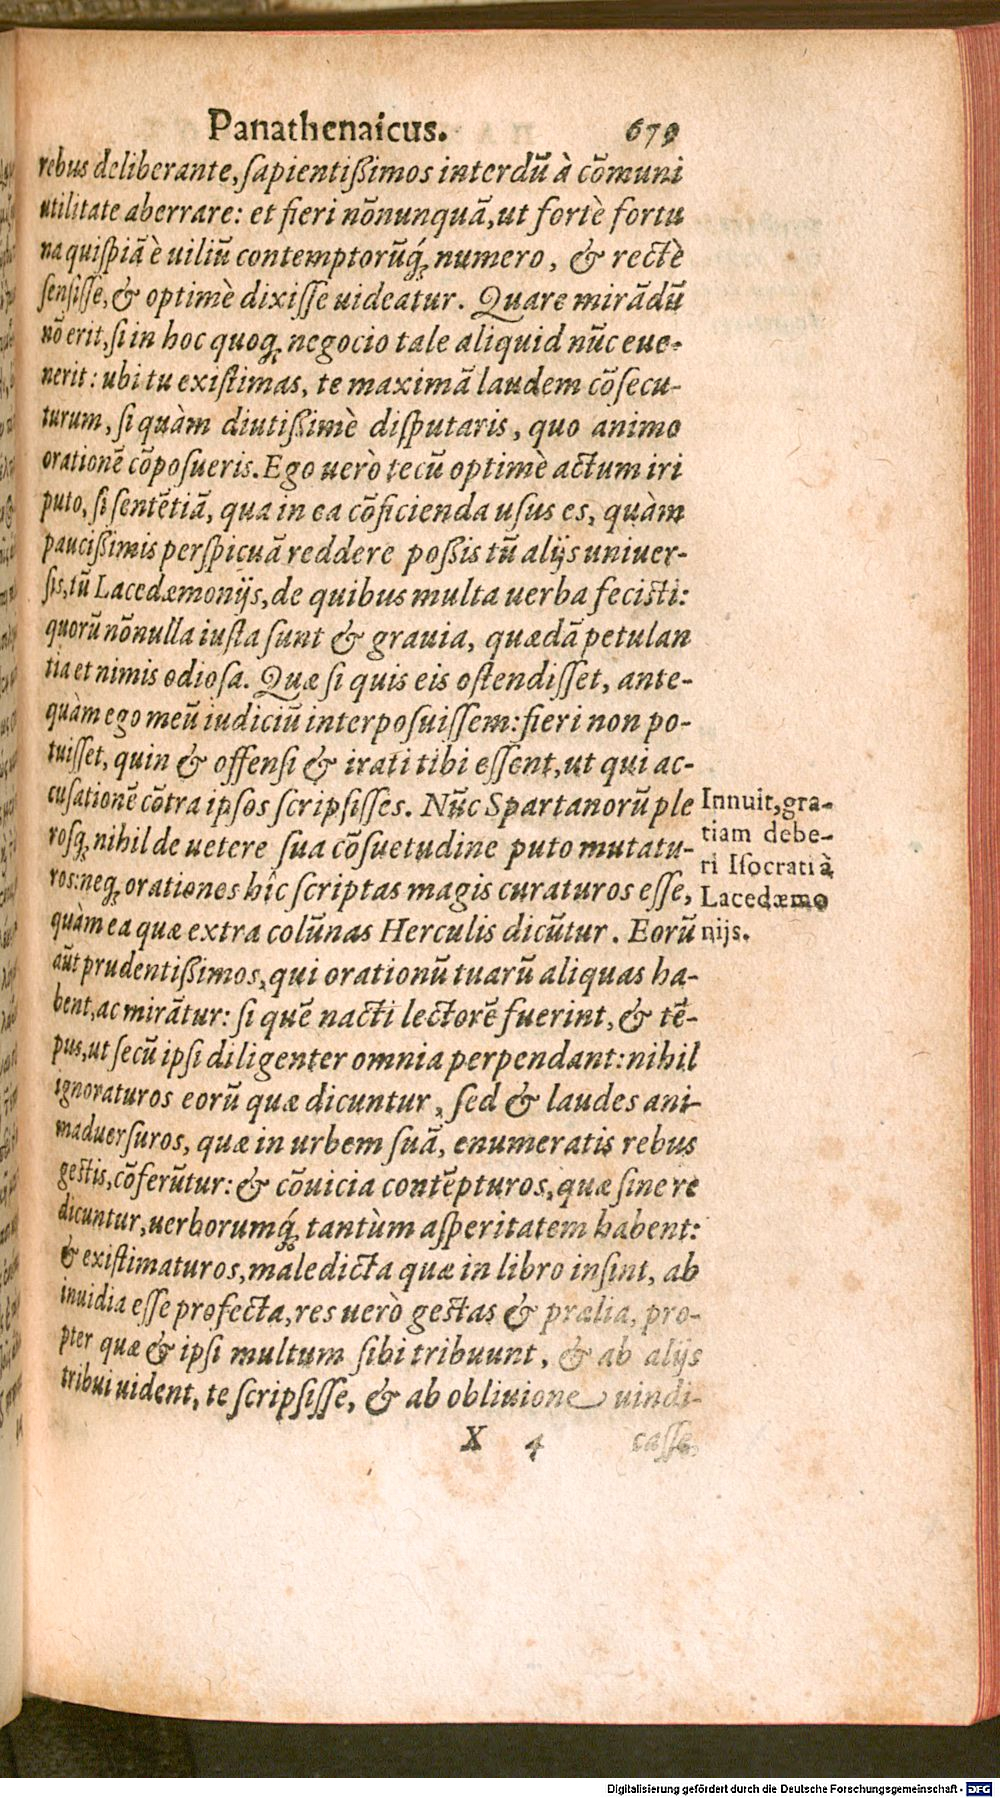 Panathenaicus. 679
rebus deliberante, sapientißimos interdũ à cõmuni
utilitate aberrare: et fieri nõnunquã, ut fortè fortu
na quispiã è uiliũ contemptorũq́; numero, & rectè
sensisse, & optimè dixisse uideatur. Quare mirãdũ
nõ erit, si in hoc quoq; negocio tale aliquid nũc eue-
nerit: ubi tu existimas, te maximã laudem cõsecu-
turum, si quàm diutißimè disputaris, quo animo
orationẽ cõposueris. Ego uerò tecũ optimè actum iri
puto, si sentẽtiã, qua in ea cõficienda usus es, quàm
paucißimis perspicuã reddere poßis tũ alijs uniuer-
sis, tũ Lacedæmonijs, de quibus multa uerba fecisti:
quorũ nõnulla iusta sunt & grauia, quædã petulan
tia et nimis odiosa. Quæ si quis eis ostendisset, ante-
quàm ego meũ iudiciũ interposuissem: fieri non po-
tuisset, quin & offensi & irati tibi essent, ut qui ac-
cusationẽ cõtra ipsos scripsisses. Nũc Spartanorũ ple
rosq; nihil de uetere sua cõsuetudine puto mutatu-
ros: neq; orationes hîc scriptas magis curaturos esse,
quàm ea quæ extra colũnas Herculis dicũtur. Eorũ
aũt prudentißimos, qui orationũ tuarũ aliquas ha-
bent, ac mirãtur: si quẽ nacti lectorẽ fuerint, & tẽ-
pus, ut secũ ipsi diligenter omnia perpendant: nihil
ignoraturos eorũ quæ dicuntur, sed & laudes ani-
maduersuros, quæ in urbem suã, enumeratis rebus
gestis, cõferũtur: & cõuicia contẽpturos, quæ sine re
dicuntur, uerborumq́; tantùm asperitatem habent:
& existimaturos, maledicta quæ in libro insint, ab
inuidia esse profecta, res uerò gestas & prælia, pro-
pter quæ & ipsi multum sibi tribuunt, & ab alijs
tribui uident, te scripsisse, & ab obliuione uindi-
X 4 casse
Innuit, gra-
tiam debe-
ri Isocrati à
Lacedæmo
nijs.
Digitalisierung gefördert durch die Deutsche Forschungsgemeinschaft - DFG